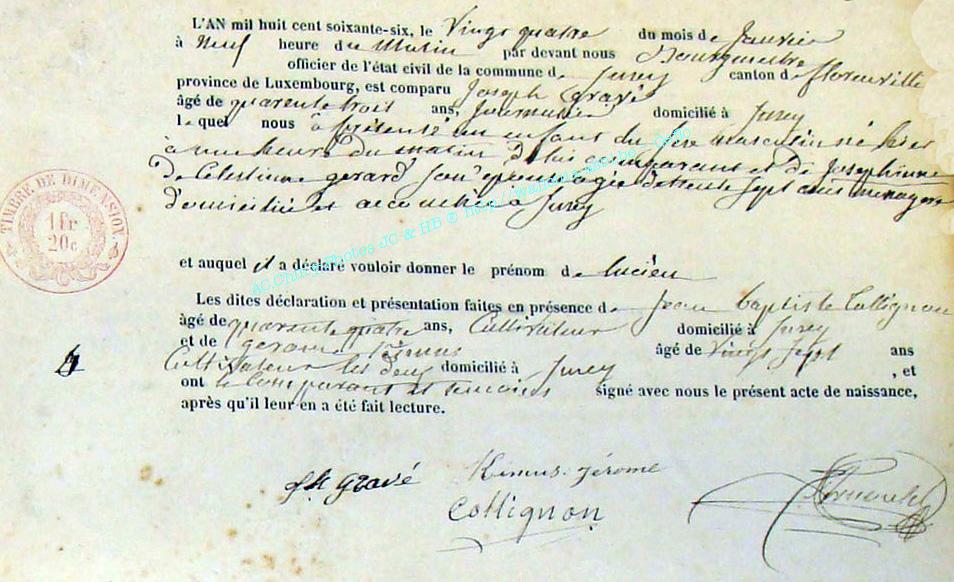 L'AN mil huit cent soixante-six, le Vingt quatre du mois de Janvier
à Neuf heure du Matin par devant nous Bourgmestre
officier de l'état civil de la commune de Jusey canton de florenville
province de Luxembourg, est comparu Joseph Gravé
âgé de quarente trois ans, Journalier domicilié à Jusey
lequel nous à présenté un enfant du sexe masculin né hier
à une heure du matin de lui comparant et de Josephinne
de Celestinne gerard son épouse agée de trente sept ans menagere
domiciliée et accouchée à Jusey
TIMBRE DE DIMENSION
1 fr
20c
AC Chiny Photos JC & HB ©
et auquel il a déclaré vouloir donner le prénom de lucien
Les dites déclaration et présentation faites en présence de Jean baptiste Collignon
âgé de quarante quatre ans, Cultivateur domicilié à Jusey
et de gerome Kémus âgé de vingt sept ans
4
Cultivateur les deux domicilié à Jusey , et
ont le Comparant et temoins signé avec nous le présent acte de naissance,
après qu'il leur en a été fait lecture.
Gravé Kémus Jérome
Collignon